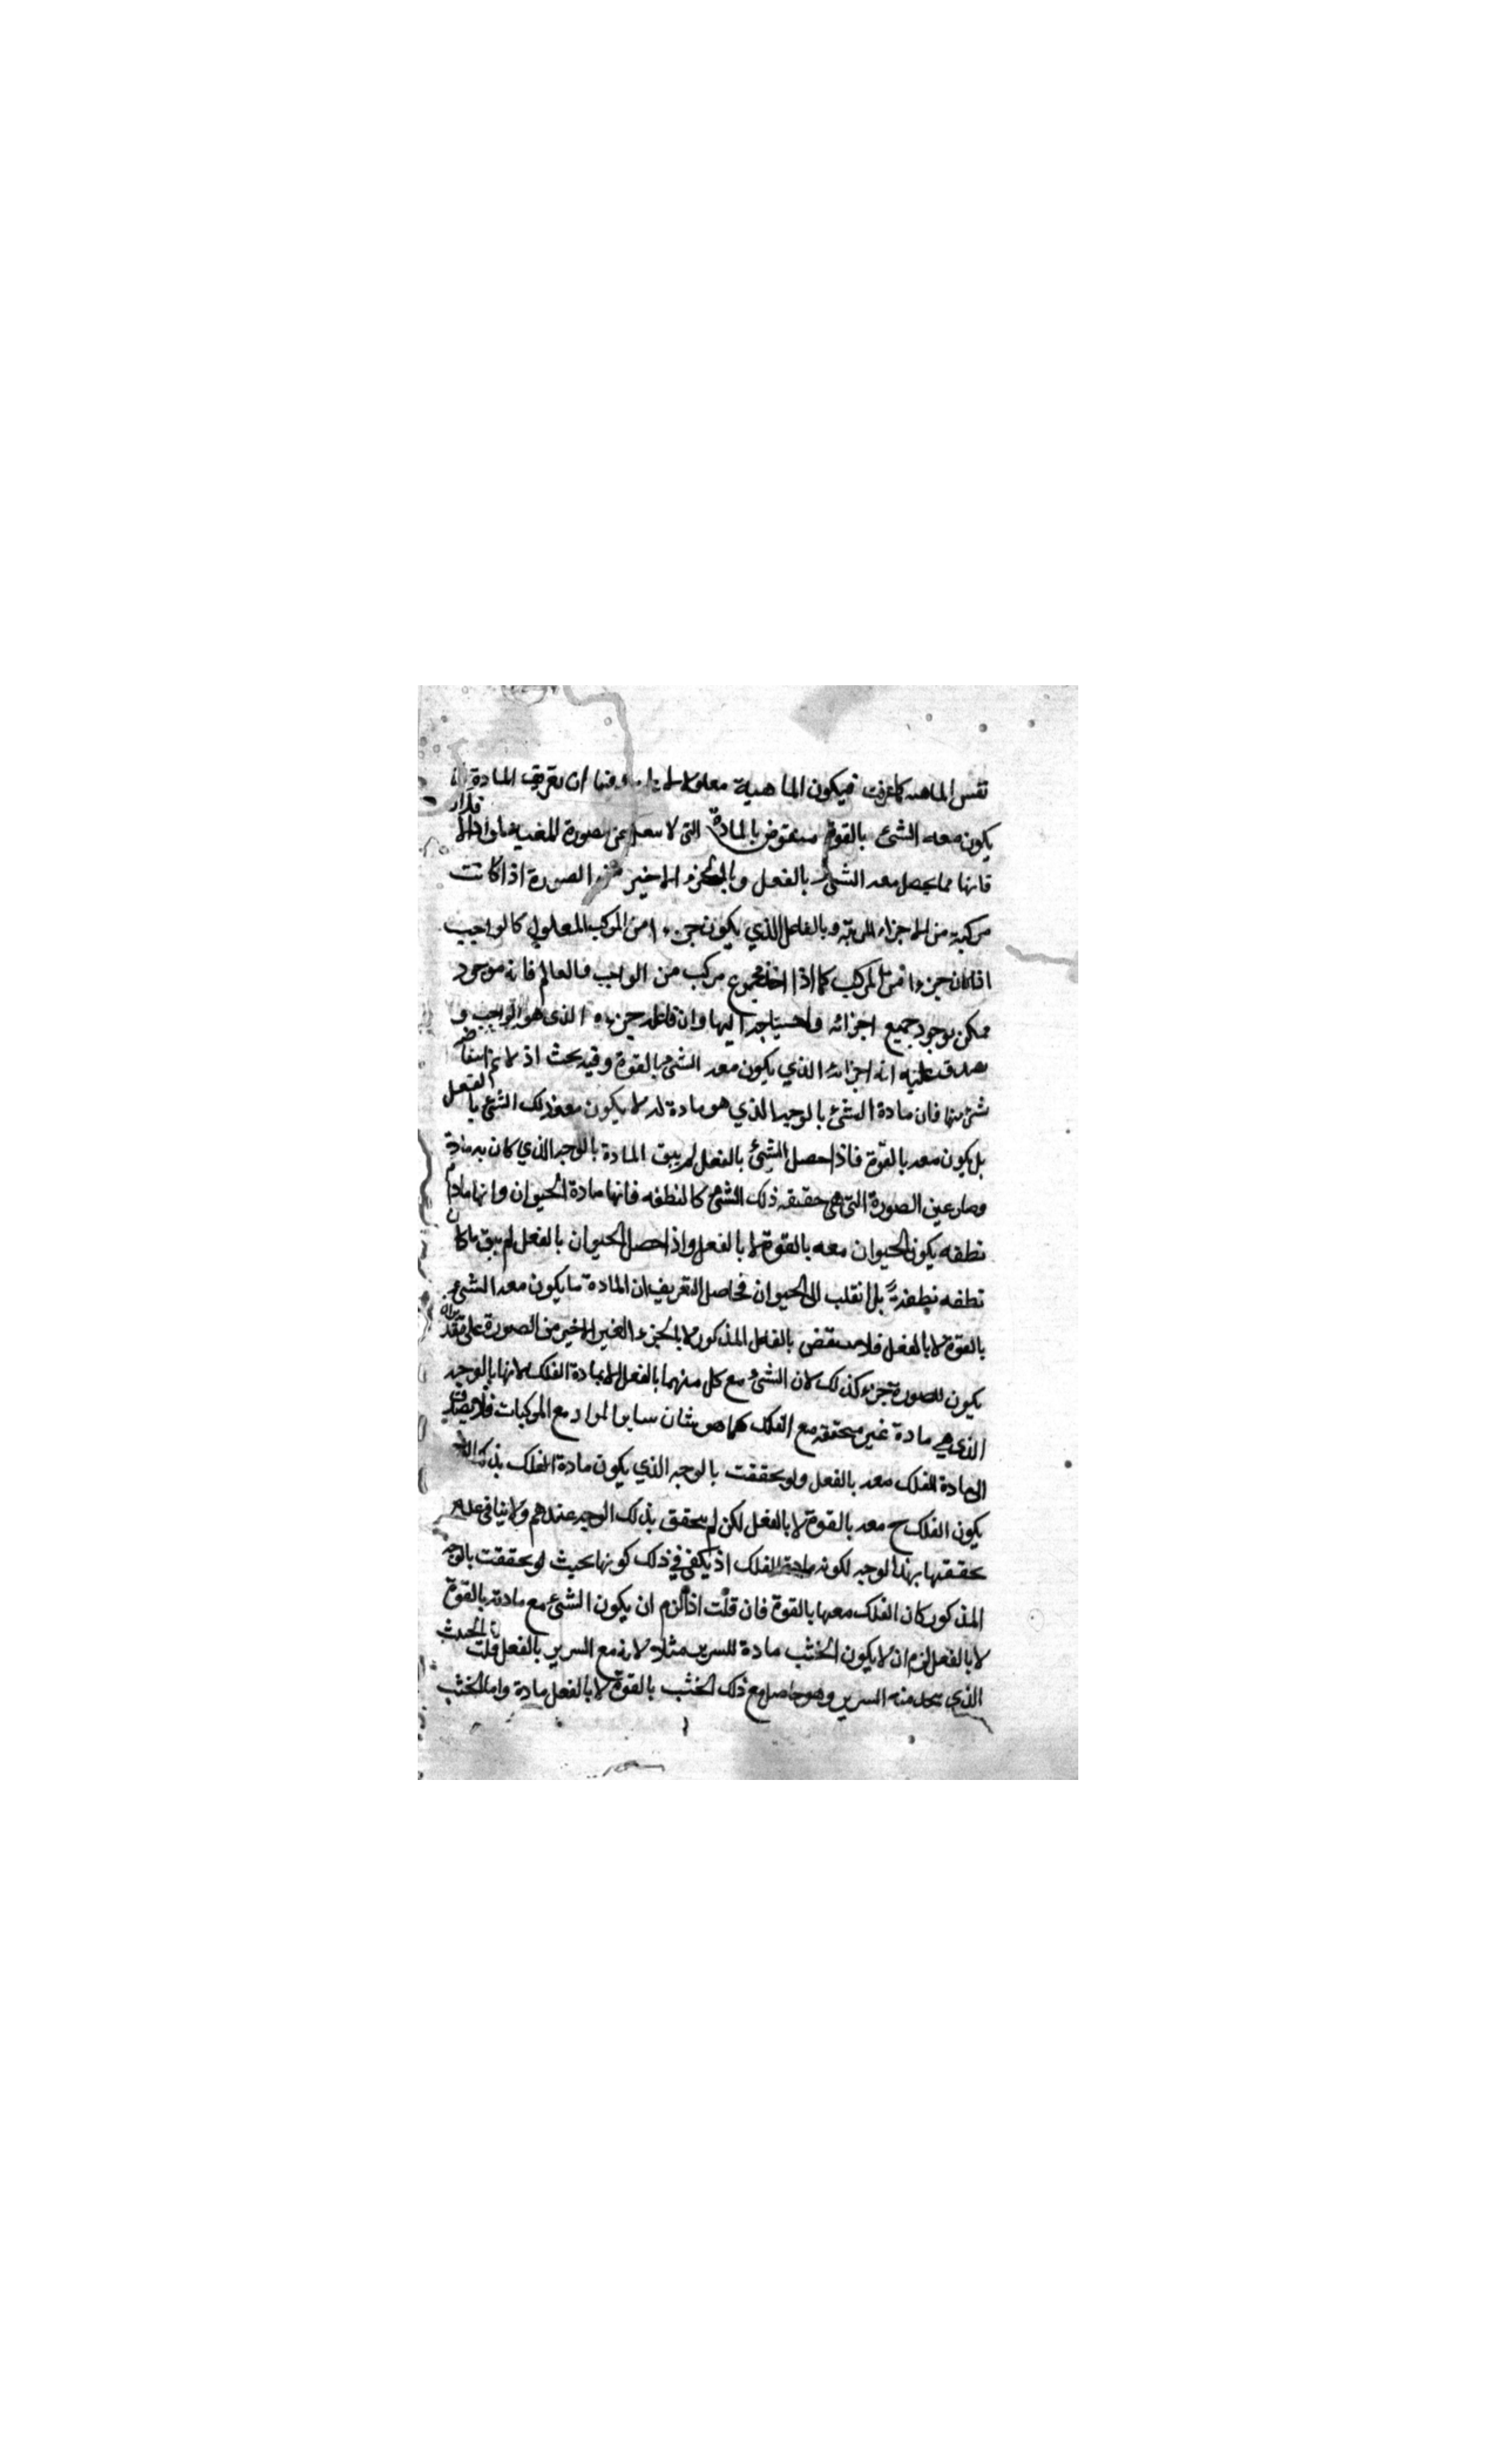 نفس الماهيه كما عرفت فيكون الماهية ان تعريف المادة
يكون معه الشئ بالقوة منقوض بالمادة التى لا عن صورة
فانها مما يحصل معه الشئ بالفعل وبالجزء الاخير من الصورة اذا كانت
مركبة من الاجزاء وبالفاعل الذي يكون جزءا من المركب المعلول كالواجب
اذا كان جزءا من المركب كما اذا اخذ مجموع مركب من الواجب والعالم فانه موجود
ممكن بوجود جميع اجزائه واحتياجه اليها وان فاعله جزءه الذى هو الواجب و
يصدق عليه انه اجزائه الذي يكون معه الشئ بالقوة وفيه بحث اذ لا
شئ منها فان مادة الشئ بالوجه الذي هو مادة له لا يكون معه ذلك الشئ بالفعل
بل يكون معه بالقوة فاذا حصل الشئ بالفعل لم يبق المادة بالوجه الذي كان به مادة
وصار عين الصورة التى هى حقيقه ذلك الشئ كالنطفه فانها مادة الحيوان وانها مادام
نطفه يكون الحيوان معه بالقوة لا بالفعل واذا حصل الحيوان بالفعل لم يبق ما كان
نطفه نطفة بل انقلب الى الحيوان فحاصل التعريف ان المادة ما يكون معه الشئ
بالقوة لا بالفعل فلا ينتقض بالفاعل المذكور لا بالجزء الغير الاخير من الصورة على تقدير ان
يكون للصورة جزء كذلك لان الشئ مع كل منهما بالفعل لا بمادة الفلك لانها بالوجه
الذي هي مادة غير متحققه مع الفلك كما هو شان سائر المواد مع المركبات فلا يصدق
ان مادة الفلك معه بالفعل ولو تحققت بالوجه الذي يكون مادة الفلك بذلك
يكون الفلك ح معه بالقوة لا بالفعل لكن لم يتحقق بذلك الوجه عندهم ولا ينافى عدم
تحققها بهذا الوجه لكونه مادة الفلك اذ يكفى في ذلك كونها بحيث لو تحققت بالوجه
المذكور كان الفلك معها بالقوة فان قلت اذا لزم ان يكون الشئ مع مادته بالقوة
لا بالفعل لزم ان لا يكون الخشب مادة للسرير مثلا لانه مع السرير بالفعل قلت
الذي منه السرير وهو حاصل مع ذلك الخشب بالقوة لا بالفعل مادة واما الخشب